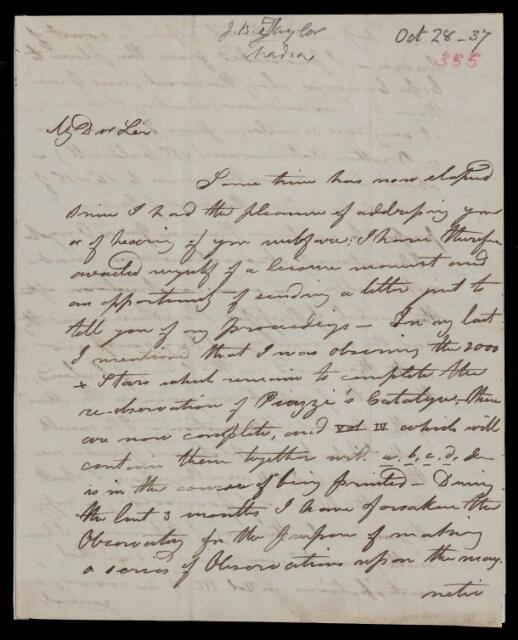 J. B. Taylor
Madras
Oct 28 - 37
355
My Dr Sir
Some time has now elapsed
since I had the pleasure of addressing you
or of hearing of your welfare; I have therefore
availed myself of a leisure moment and
an opportunity of sending a letter just to
tell you of my proceedings — In my last
I mentioned that I was observing the 2000
+ Stars which remain to complete the
re-observation of Piazzi's Catalogue, these
are now complete, and Vol IV which will
contain them together with a, b, c, d, &c
is in the course of being printed — During
the last 3 months I have forsaken the
Observatory for the purpose of making
a series of Observations upon the mag-
netic